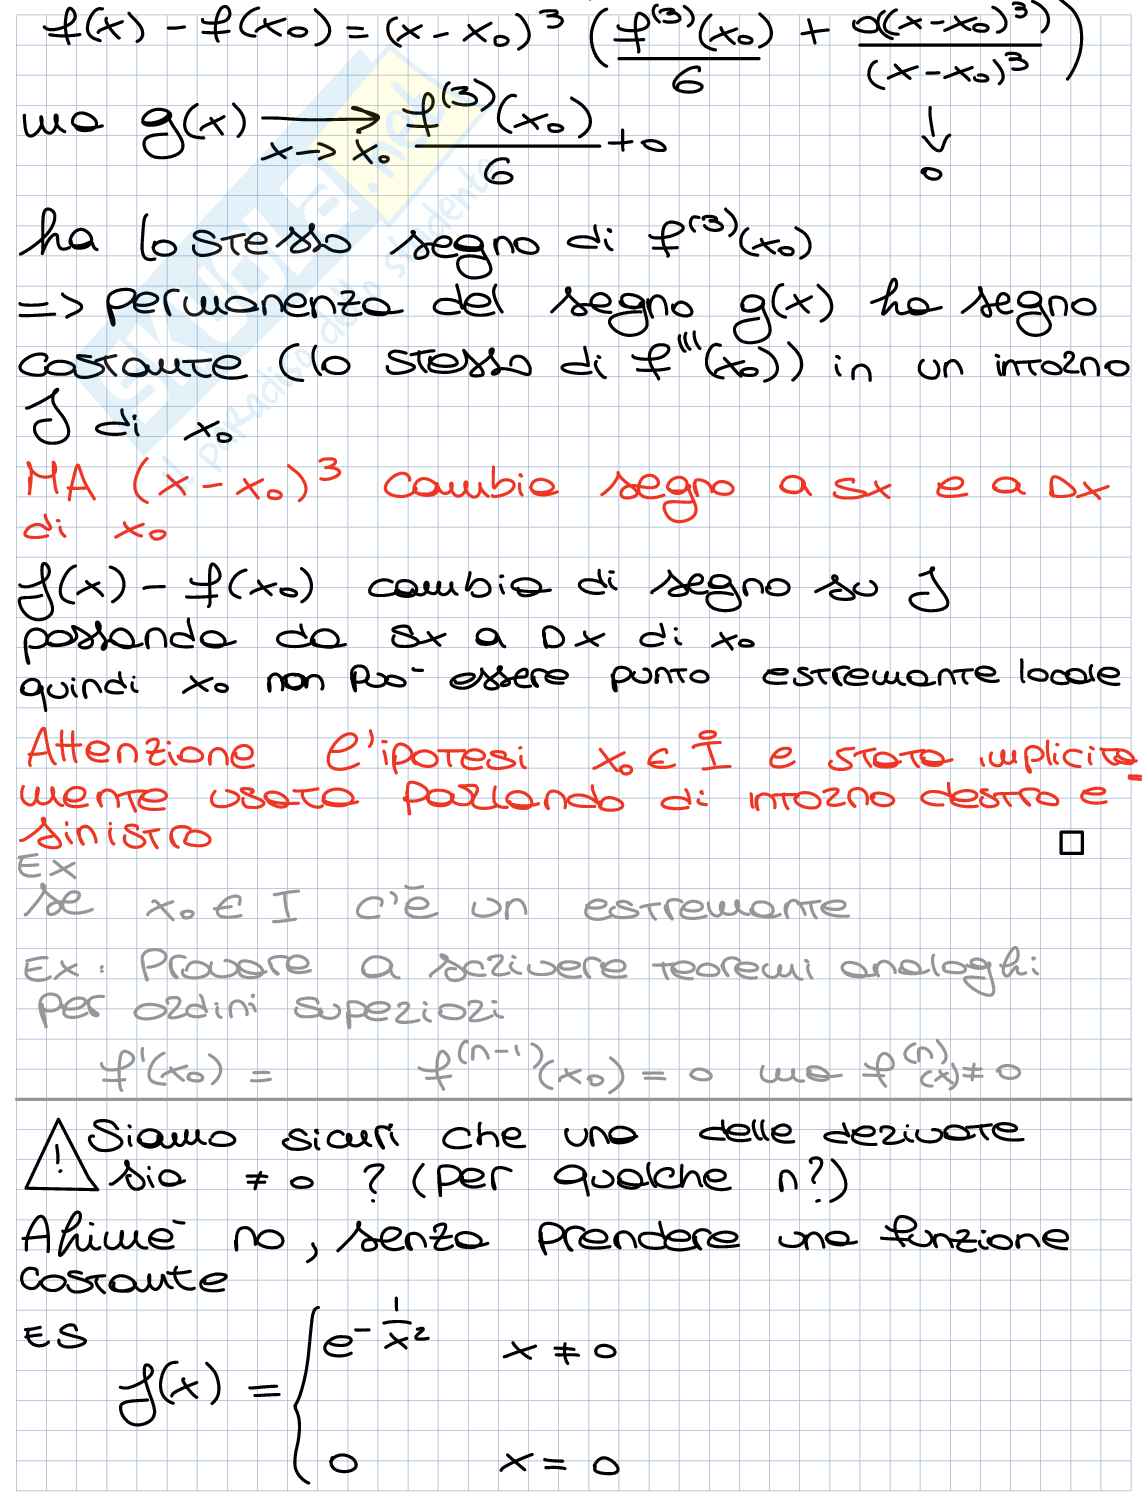 f(x) - f(x₀) = (x - x₀)³ (f⁽³⁾(x₀)/6 + o((x-x₀)³)/(x-x₀)³)
↓
0
ma g(x) →ₓ→ₓ₀ f⁽³⁾(x₀)/6 + 0
ha lo stesso segno di f⁽³⁾(x₀)
=> permanenza del segno g(x) ha segno
costante (lo stesso di f'''(x₀)) in un intorno
J di x₀
MA (x-x₀)³ cambia segno a sx e a Dx
di x₀
f(x) - f(x₀) cambia di segno su J
passando da sx a Dx di x₀
quindi x₀ non può essere punto estremante locale
Attenzione l'ipotesi x₀ ∈ I° e stata implicita-
mente usata parlando di intorno destro e
sinistro □
Ex
se x₀ ∈ I c'è un estremante
Ex: Provare a scrivere teoremi analoghi
per ordini superiori
f'(x₀) = f⁽ⁿ⁻¹⁾(x₀) = 0 ma f⁽ⁿ⁾(x) ≠ 0
! Siamo sicuri che una delle derivate
sia ≠ 0 ? (per qualche n?)
Ahimè no, senza prendere una funzione
costante
ES
f(x) = { e^(-1/x²) x ≠ 0
0 x = 0
SKUOLA.net
il paradiso dello studente